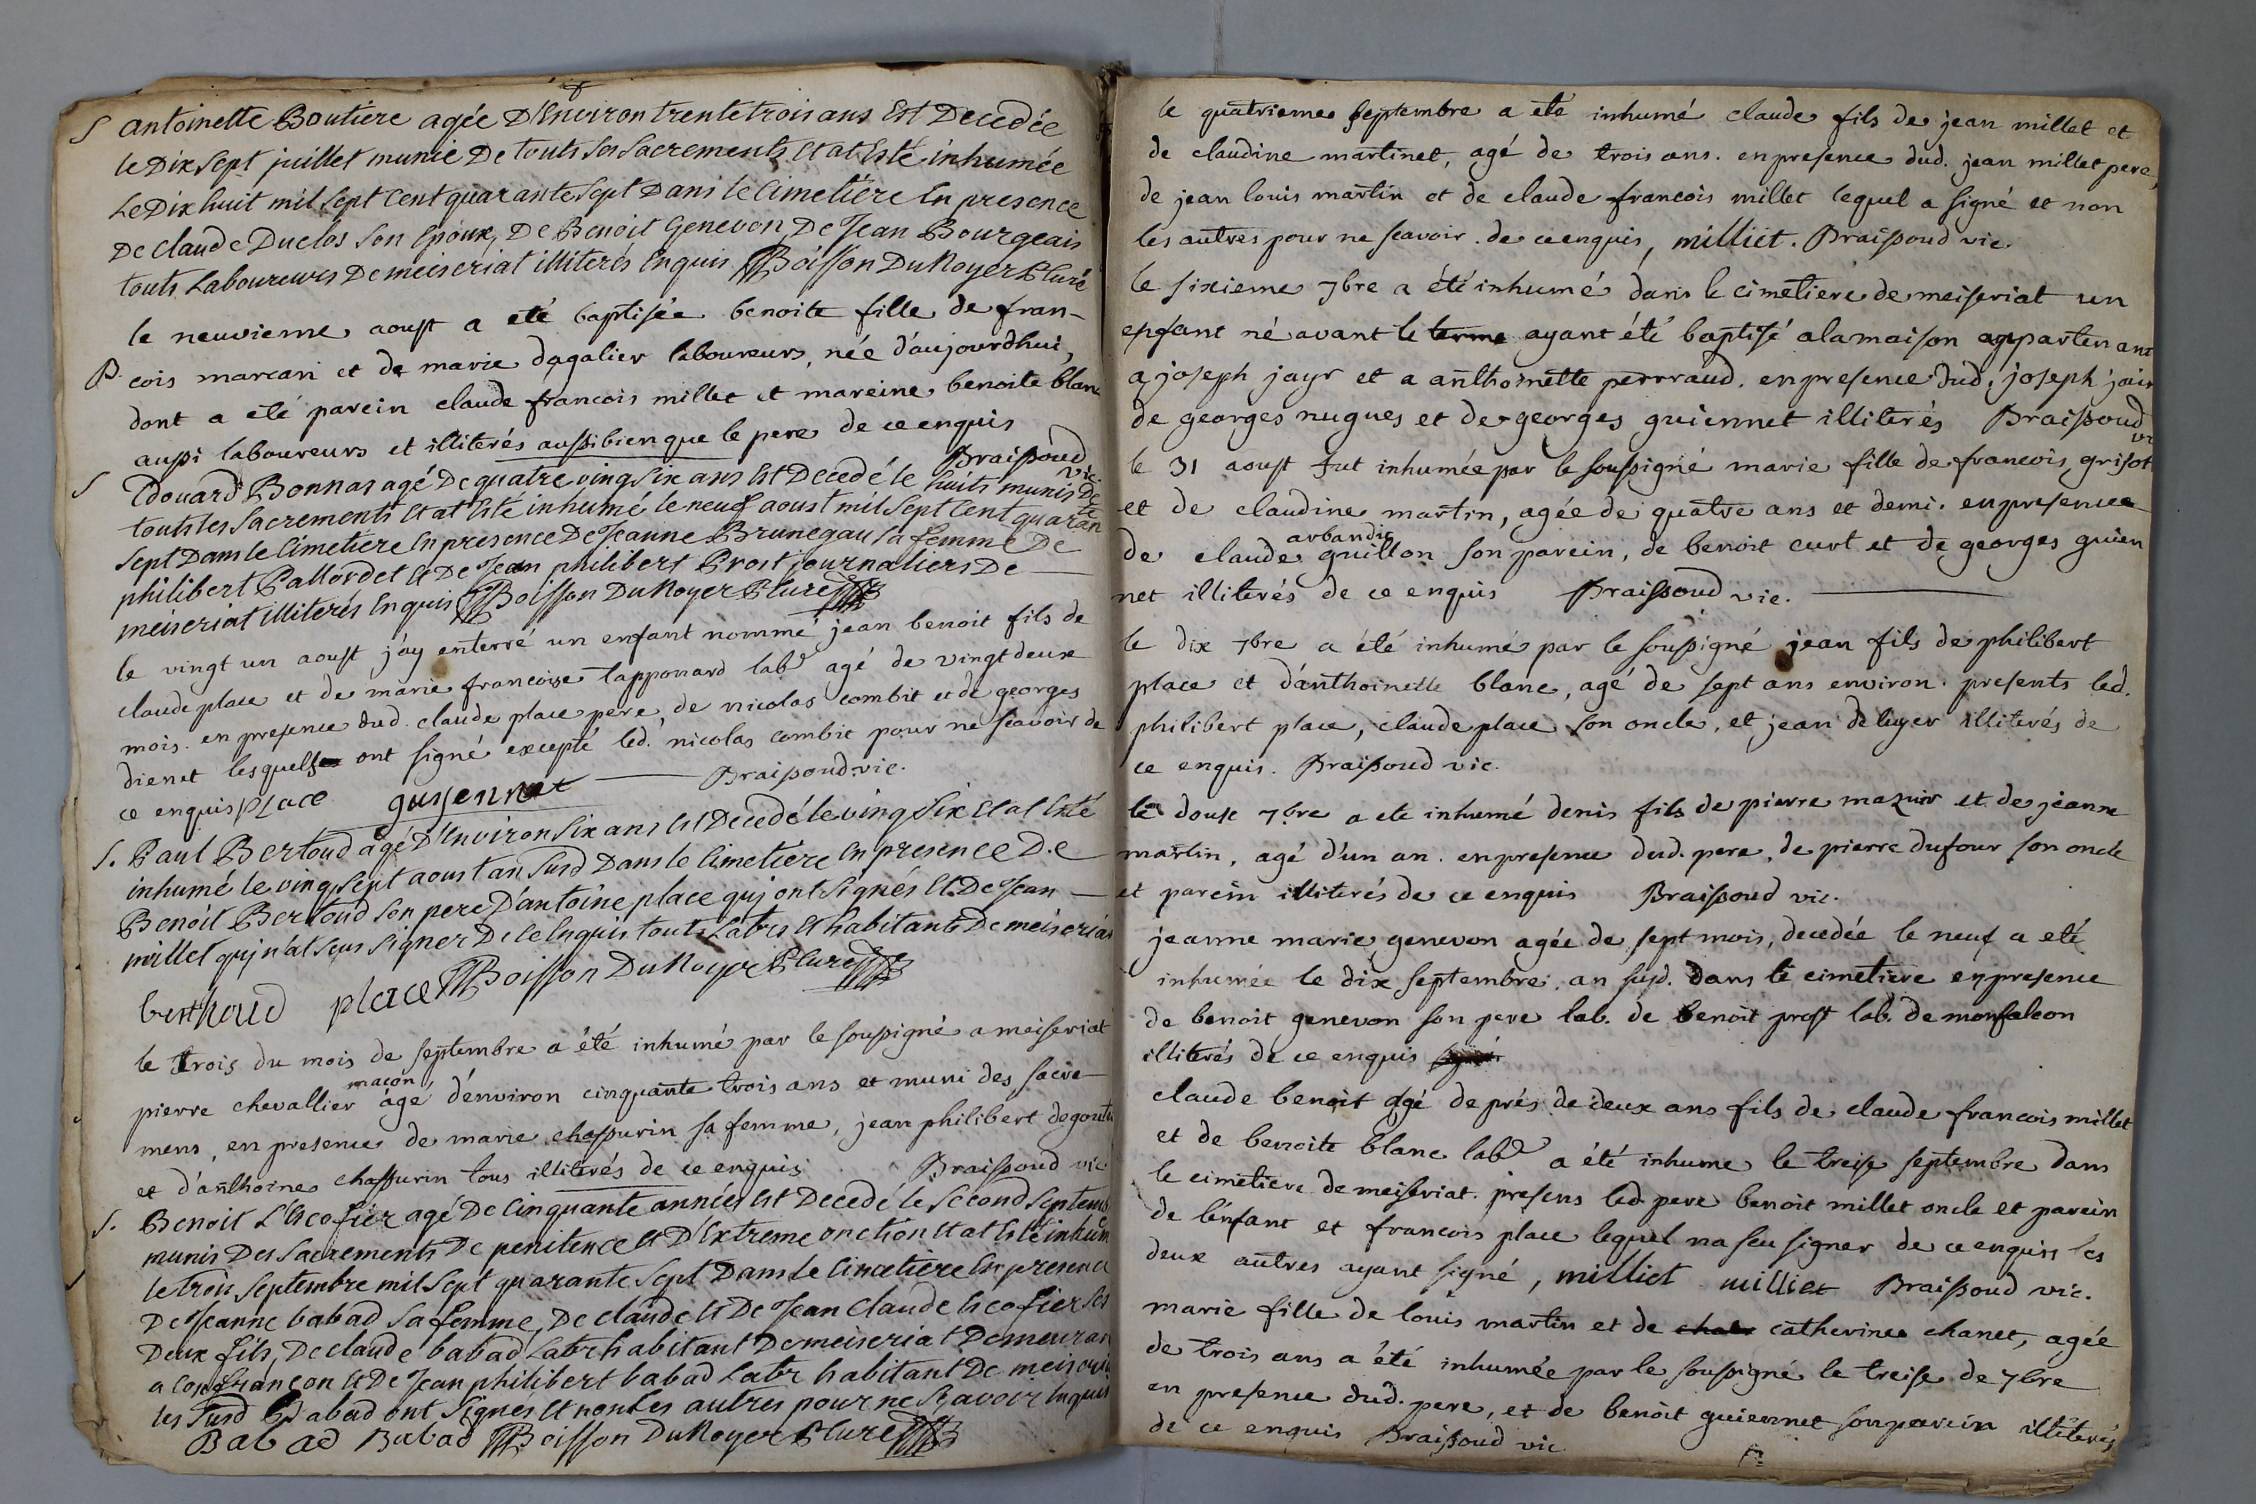 S antoinette Boutiere agée D'Environ trente trois ans Est Decedée
le Dix sept juillet munie De touts ses sacrements Et at Esté inhumée
Le Dix huit mil sept Cent quarante sept Dans le Cimetiére En presence
De claude Duclos son Epoux, De Benoit Genevon, De Jean Bourgeais
touts Laboureurs De meiseriat illiterés Enquis Boisson Du Noyer Curé
le neuvieme aoust a eté baptisée benoite fille de fran-
B. cois marcari et de marie dagalier laboureurs, née d'aujourdhui,
dont a eté parein claude francois millet et mareine benoite blanc
aussi laboureurs et illiterés aussi bien que le pere de ce enquis
Braissoud vic.
S Edouard Bonnas agé De quatre ving six ans Est Decedé le huits munis De
touts les sacrements Et at Esté inhumé le neuf aoust mil sept Cent quaran te
sept Dans le Cimetiere En presence De Jeanne Brunegau sa femme De
philibert Pallordet Et De Jean philibert Prost journaliers De
meiseriat illiterés Enquis Boisson Du Noyer Curé
le vingt un aoust j'ay enterré un enfant nommé jean benoit fils de
claude place et de marie francoise lapponard labr agé de vingt deux
mois. en presence dud. claude place pere, de nicolas combit et de georges
dienet lesquels ont signé excepté led. nicolas combit pour ne scavoir de
ce enquis place guyennet Braissoud vic.
S. Paul Bertoud agé D'Environ six ans Est Decedé le ving six Et at Esté
inhumé le ving sept aoust an susd Dans le Cimetiére En presence De
Benoit Bertoud son pere D'antoine place quj ont signés Et De Jean
millet quj n'at seus signer De Ce Enquis touts Labrs Et habitants De meiseriat
berthoud place Boisson Du Noyer Curé
le trois du mois de septembre a été inhumé par le soussigné a meiseriat
pierre chevallier maçon agé d'environ cinquante trois ans et muni des sacre-
mens, en presence de marie chassurin sa femme, jean philibert degoutte
et d'anthoine chassurin tous illiterés de ce enquis Braissoud vic
S. Benoit L'Escofier agé De Cinquante années Est Decedé le second septemb
munis Des sacrements De penitence Et D'Extreme onction Et at Esté inhum
le trois septembre mil sept quarante sept Dans le Cimetiére En presence
De Jeanne babad sa femme, De claude Et De Jean Claude Escofier ses
Deux fils, De claude babad Labr habitant De meiseriat Demeuran
a confrançon Et De Jean philibert babad Labr habitant De meiseria
les susd Babad ont signés Et non Les autres pour ne sçavoir Enquis
Babad Babad Boisson Du Noyer Curé
le quatrieme septembre a eté inhumé claude fils de jean millet et
de claudine martinet, agé de trois ans. en presence dud. jean millet pere,
de jean louis martin et de claude francois millet lequel a signé et non
les autres pour ne scavoir. de ce enquis, milliet. Braissoud vic.
le sixieme 7bre a été inhumé dans le cimetiere de meiseriat un
enfant né avant le terme ayant été baptisé a la maison appartenant
a joseph jayr et a anthoinette perrraud. en presence dud. joseph jair
de georges nugues et de georges guiennet illiterés Braissoud vi
le 31 aoust fut inhumée par le soussigné marie fille de francois grisot
et de claudine martin, agée de quatre ans et demi. en presence
de claude arbandie guillon son parein, de benoit curt et de georges guien
net illiterés de ce enquis Braissoud vic.
le dix 7bre a été inhumé par le soussigné jean fils de philibert
place et d'anthoinette blanc, agé de sept ans environ. presents led.
philibert place, claude place son oncle, et jean deluyer illiterés de
ce enquis. Braissoud vic.
le douse 7bre a ete inhumé denis fils de pierre mazuir et de jeanne
martin, agé d'un an. en presence dud. pere, de pierre dufour son oncle
et parein illiterés de ce enquis Braissoud vic.
jeanne marie genevon agée de sept mois, decedée le neuf a eté
inhumée le dix septembre. an susd. dans le cimetiere en presence
de benoit genevon son pere lab. de benoit prost lab. de monfalcon
illiterés de ce enquis
claude benoit agé de prés de deux ans fils de claude francois millet
et de benoite blanc labr a été inhumé le treise septembre dans
le cimetiere de meiseriat. presens led. pere benoit millet oncle et parein
de l'enfant et francois place lequel na seu signer de ce enquis les
deux autres ayant signé, milliet milliet Braissoud vic.
marie fille de louis martin et de catherine chanet, agée
de trois ans a été inhumée par le soussigné le treise de 7bre
en presence dud. pere, et de benoit guiennet son parein illiterés
de ce enquis Braissoud vic